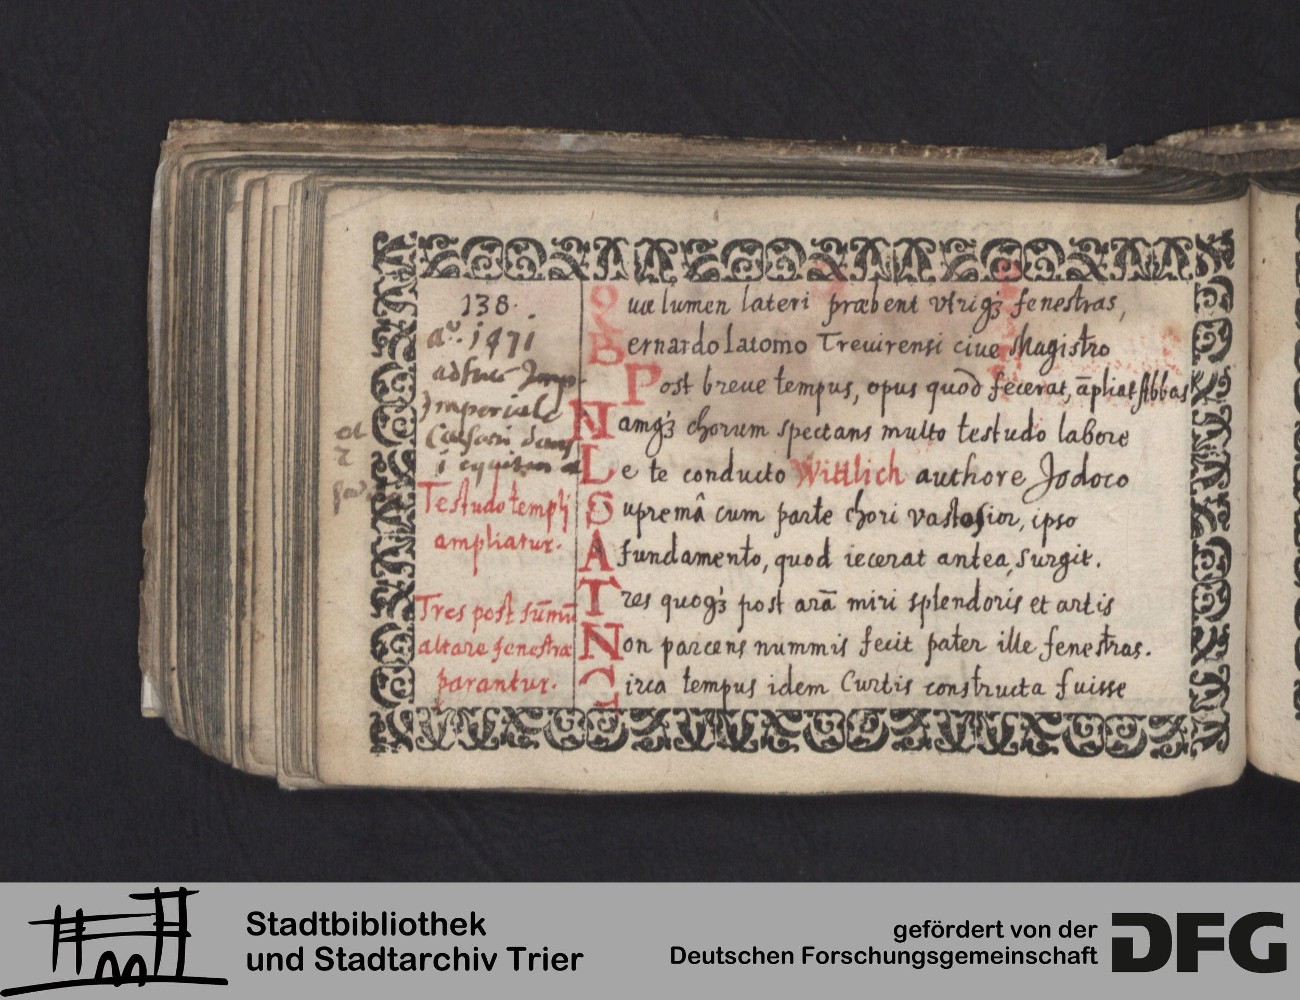 138.
aº. 1471
Imperiale
Testudo templi
ampliatur.
Tres post sūmū
altare fenestræ
parantur.
Quæ lumen lateri præbent utrigȝ fenestras,
Bernardo latomo Treuirensi ciue Magistro
Post breue tempus, opus quod fecerat, āpliat Abbas
Namgȝ chorum spectans multo testudo labore
Le te conducto Wittlich authore Jodoco
Supremâ cum parte chori vastosior, ipso
A fundamento, quod iecerat antea, surgit.
Tres quogȝ post arā miri splendoris et artis
Non parcens nummis fecit pater ille fenestras.
Circa tempus idem Curtis constructa fuisse
Stadtbibliothek
und Stadtarchiv Trier
gefördert von der
Deutschen Forschungsgemeinschaft
DFG